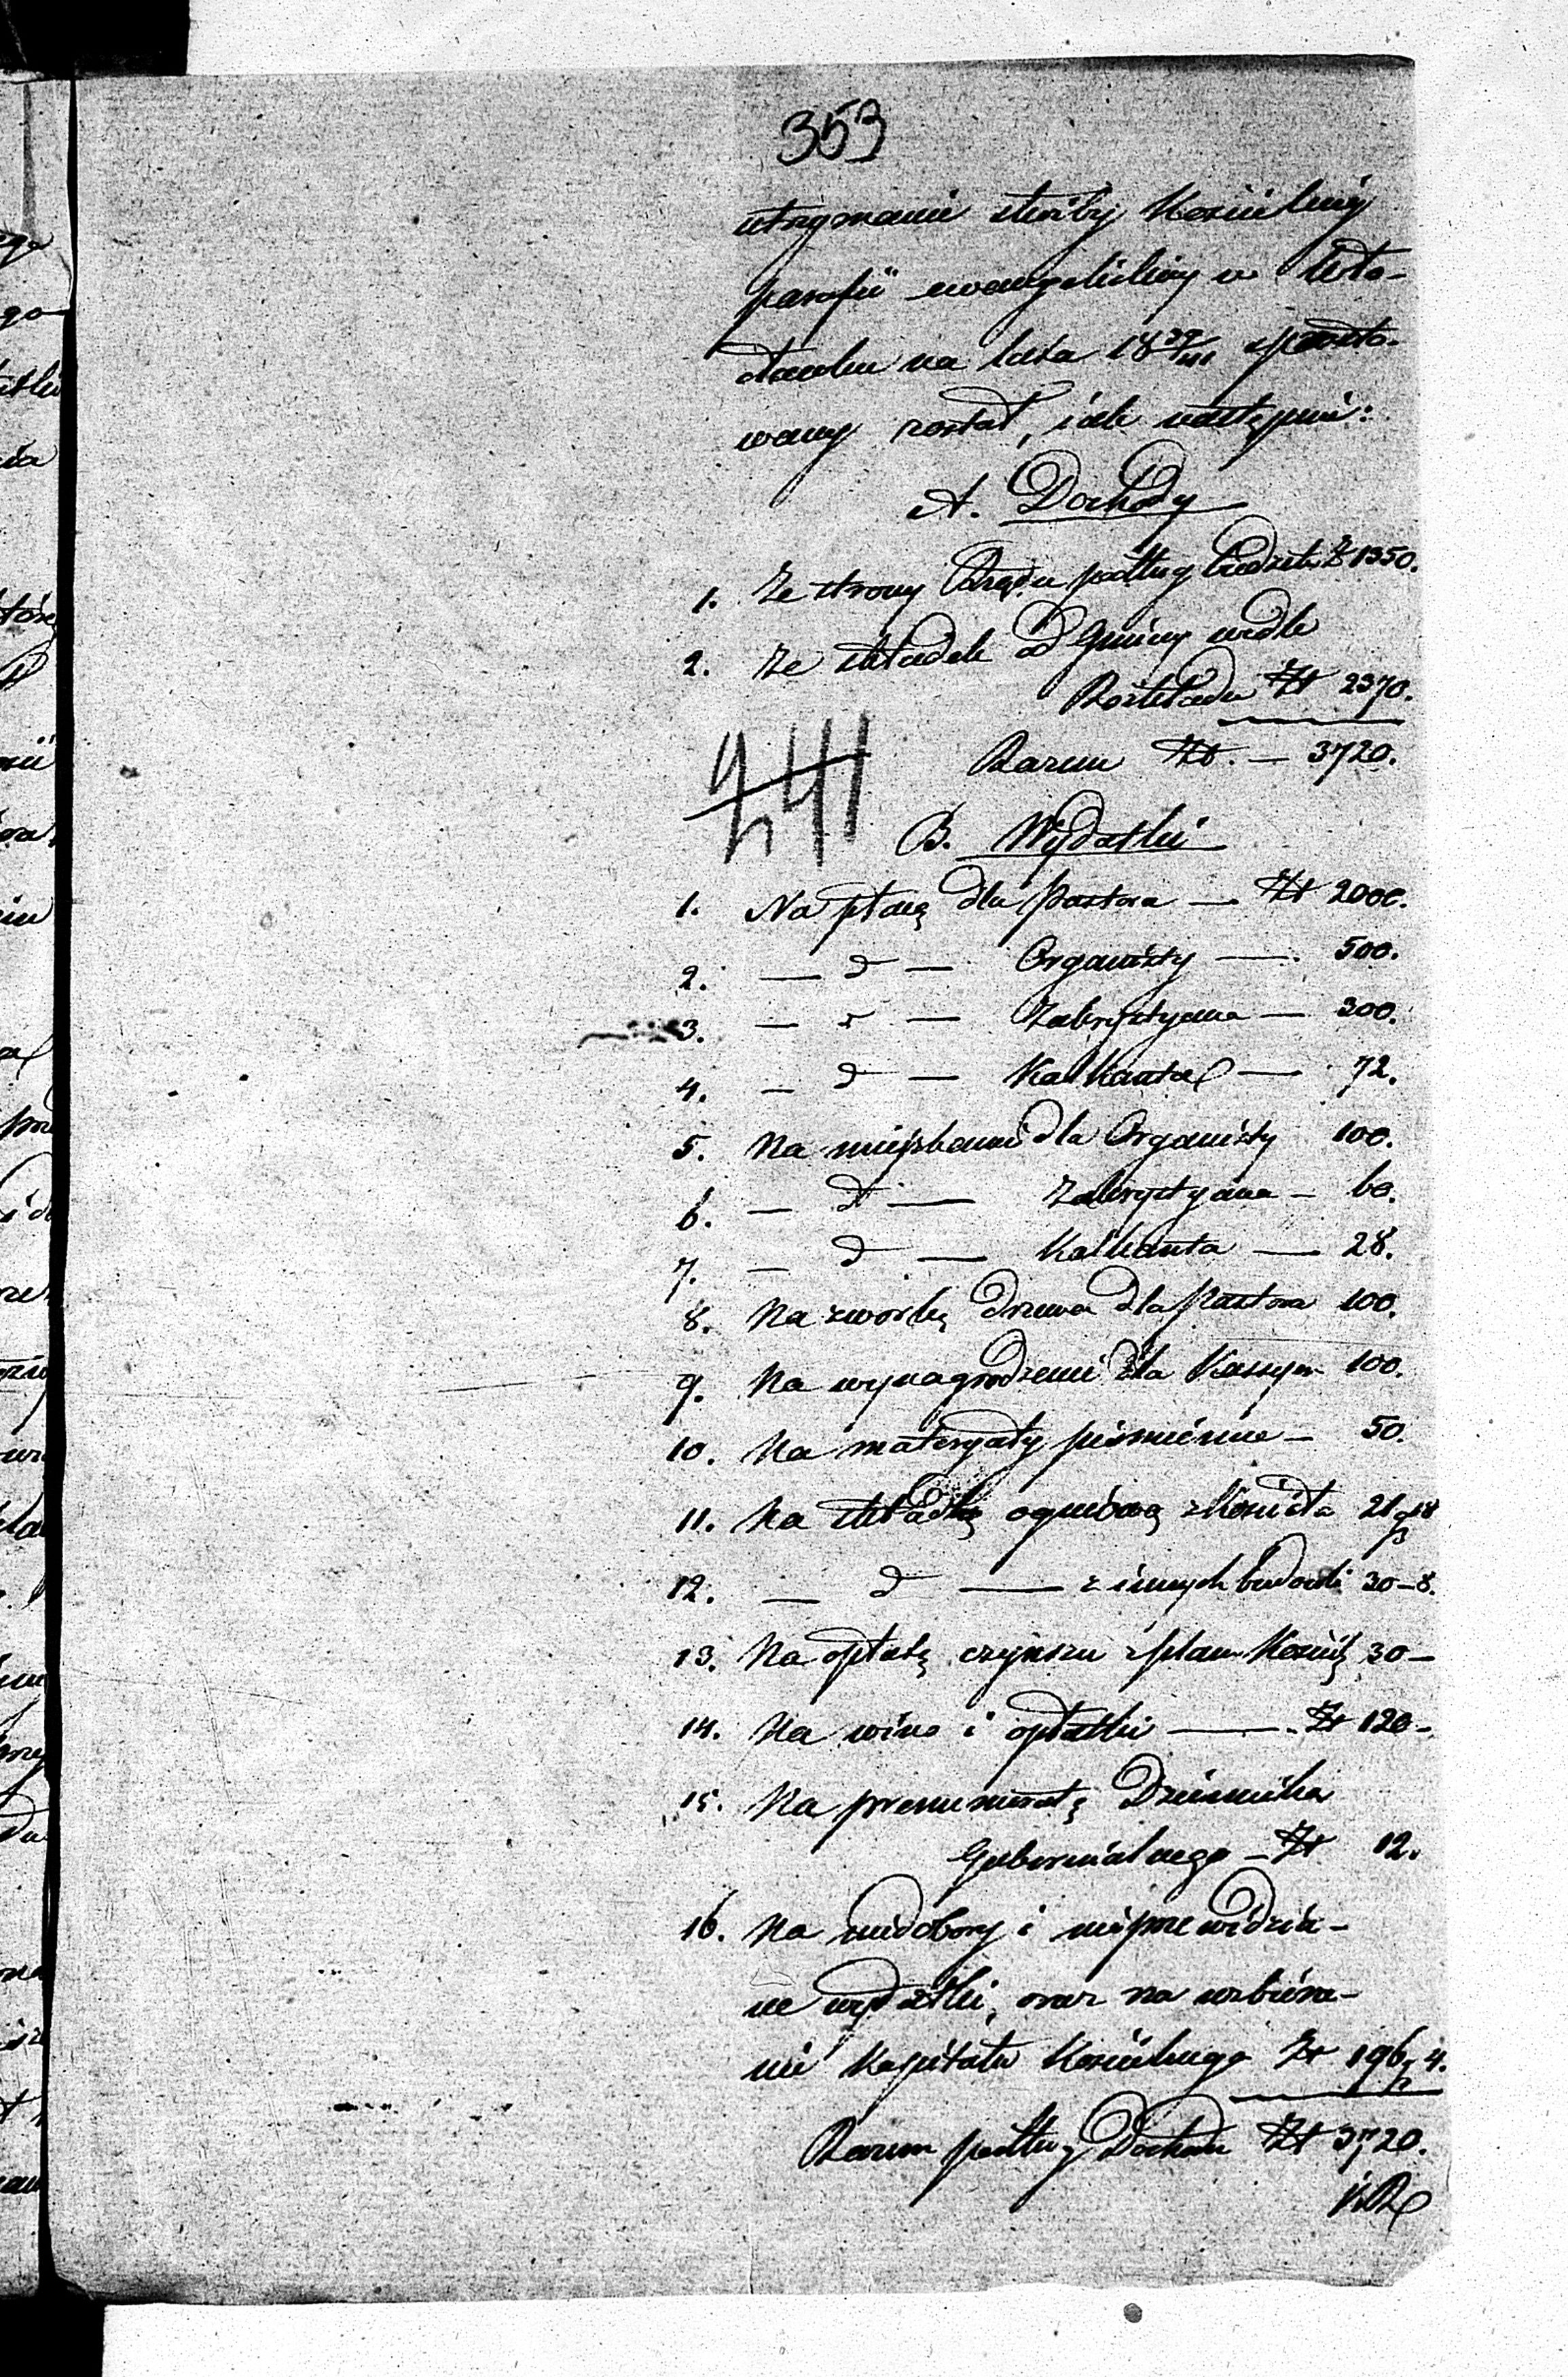 353
utrzymanie służby Kościelney
parafii ewangelickiey w Wło-
cławku na lata 18 39/41 uformo-
wany został, iak następuie:
A. Dochody
1. Ze strony Rządu podług budżetu Zł 1350.
2. Ze składek od Gminy wedle
Rozkładu Zł 2370.
Razem Zł. — 3720.
241
B. Wydatki
1. Na płacę dla Pastora — Zł 2000.
2. — d — Organisty — 500.
3. — d — Zakrystyana — 300.
4. — d — Kalkanta — 72.
5. Na mieszkanie dla Organisty 100.
6. — d — Zakrystyana — 60.
7. — d — Kalkanta — 28.
8. Na zwózkę drzewa dla Pastora 100.
9. Na wynagrodzenie dla Kassyera 100.
10. Na materyały piśmienne — 50.
11. Na składkę ogniową z Kościoła 21 gr 18
12. — d — z innych budowli 30 — 8.
13. Na opłatę czynszu z planu Kościel 30 —
14. Na wino i opłatki — Zł 120 —
15. Na prenumeratę Dziennika
Gubernialnego — Zł 12.
16. Na niedobory i nieprzewidzia-
ne wydatki, oraz na uzbiera-
nie Kapitału Kościelnego Zł 196 gr 4.
Razem podług Dochodu Zł 3720.